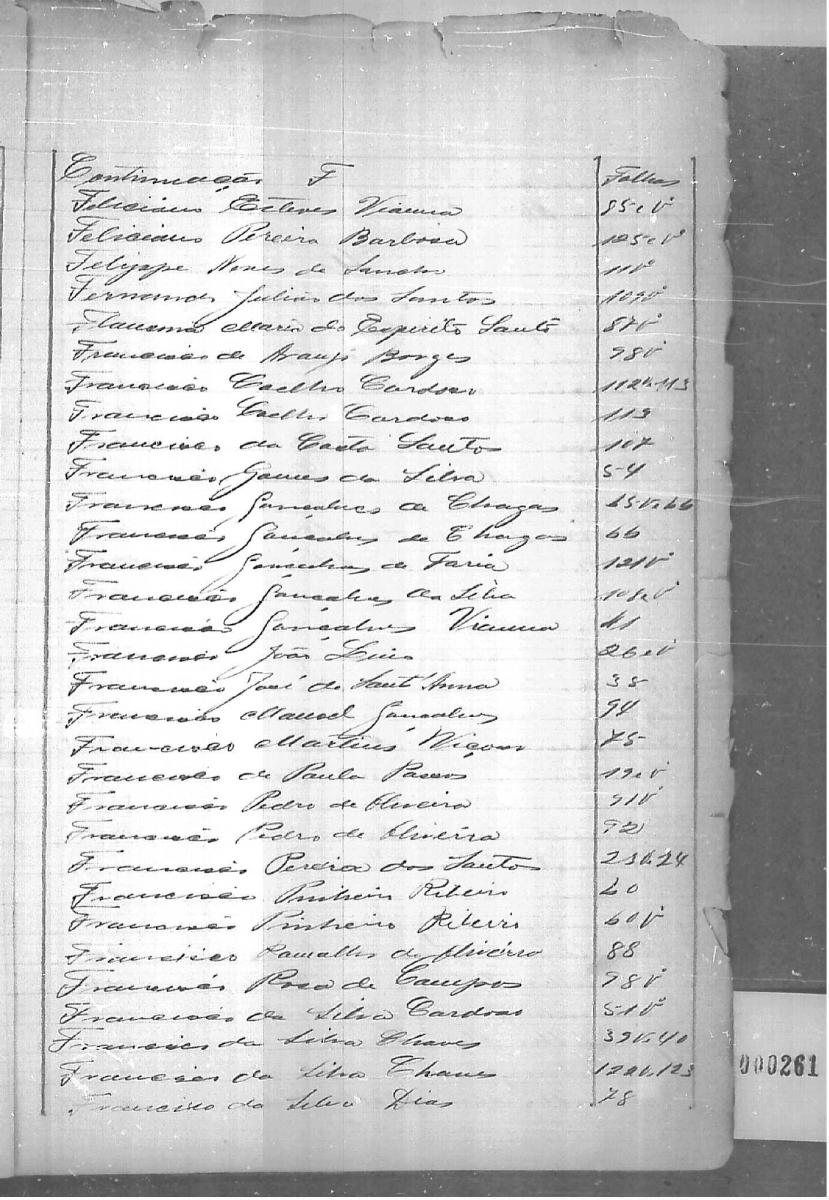 Continuação F Folhas
Feliciano Esteves Vianna 85 e Vº
Feliciano Pereira Barbosa 125 e Vº
Felippe Neves de 11Vº
Fernando Julião dos Santos 109Vº
Maria do Espirito Santo 87Vº
Francisco de Araujo Borges 98Vº
Francisco Coelho Cardoso 112V.113
Francisco Coelho Cardoso 113
Francisco da Costa Santos 107
Francisco Gomes da Silva 54
Francisco Gonçalves de Chagas 65V.66
Francisco Gonçalves de Chagas 66
Francisco Gonçalves de Faria 121Vº
Francisco Gonçalves da Silva
Francisco Gonçalves Vianna
Francisco João Luis 26 e Vº
Francisco José de Sant'Anna 38
Francisco Manoel Gonçalves 94
Francisco Martins Viçoso 75
Francisco de Paula Passos 19 e Vº
Francisco Pedro de Oliveira 91Vº
Francisco Pedro de Oliveira 92
Francisco Pereira dos Santos 23V.24
Francisco Pinheiro Ribeiro 60
Francisco Pinheiro Ribeiro 60Vº
Francisco Ramalho de Oliveira 88
Francisco Rosa de Campos 98Vº
Francisco da Silva Cardoso 51Vº
Francisco da Silva Chaves 39V.40
Francisco da Silva Chaves 122V.123
Francisco da Silva Dias 78
000261